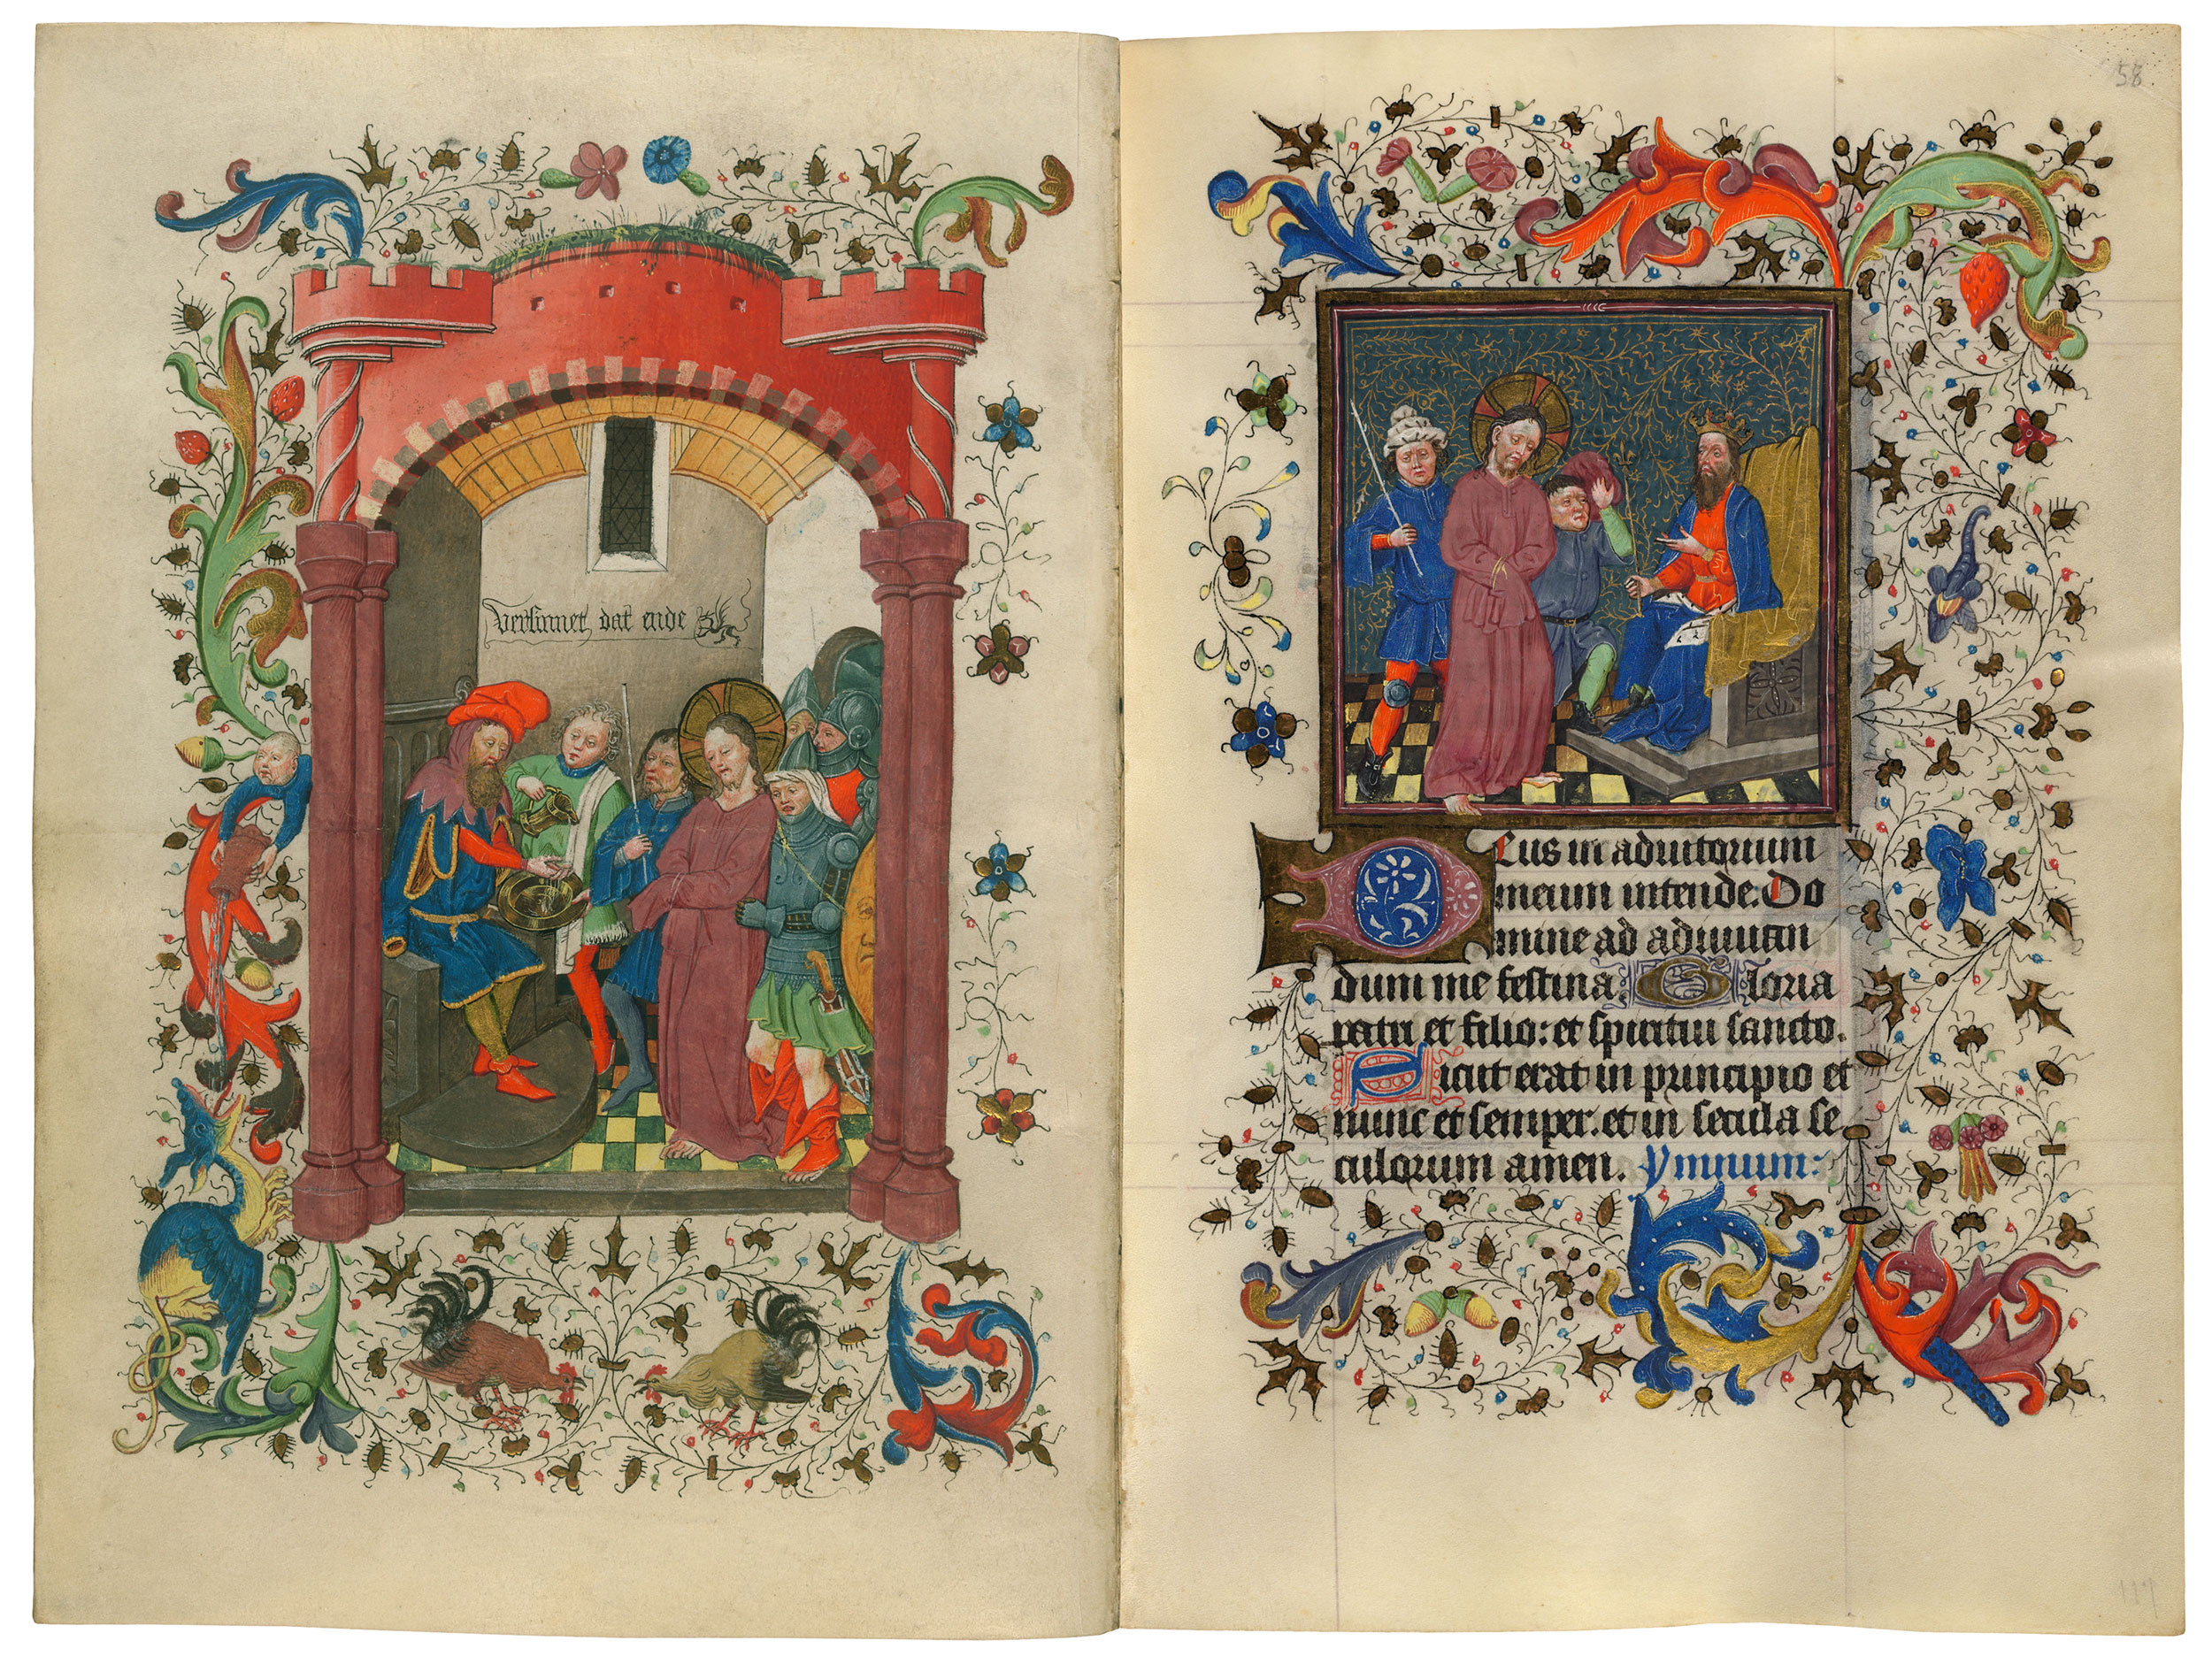 versinnet dat ende
58
Deus in adiutorium
meum intende. Do
mine ad adiuuan
dum me festina. Gloria
patri et filio: et spiritui sancto.
Sicut erat in principio et
nunc et semper. et in secula se
culorum amen. Ymnum:
117